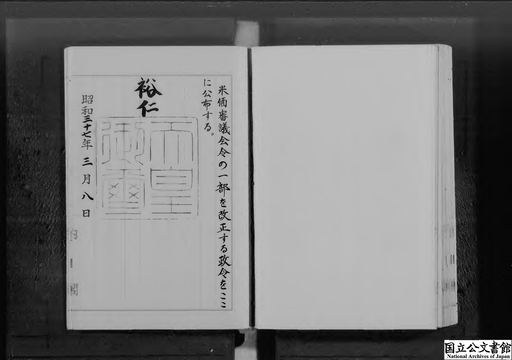 米価審議会令の一部を改正する政令をここ
に公布する。
裕仁
天皇御璽
昭和三十七年三月八日
国立公文書館
National Archives of Japan